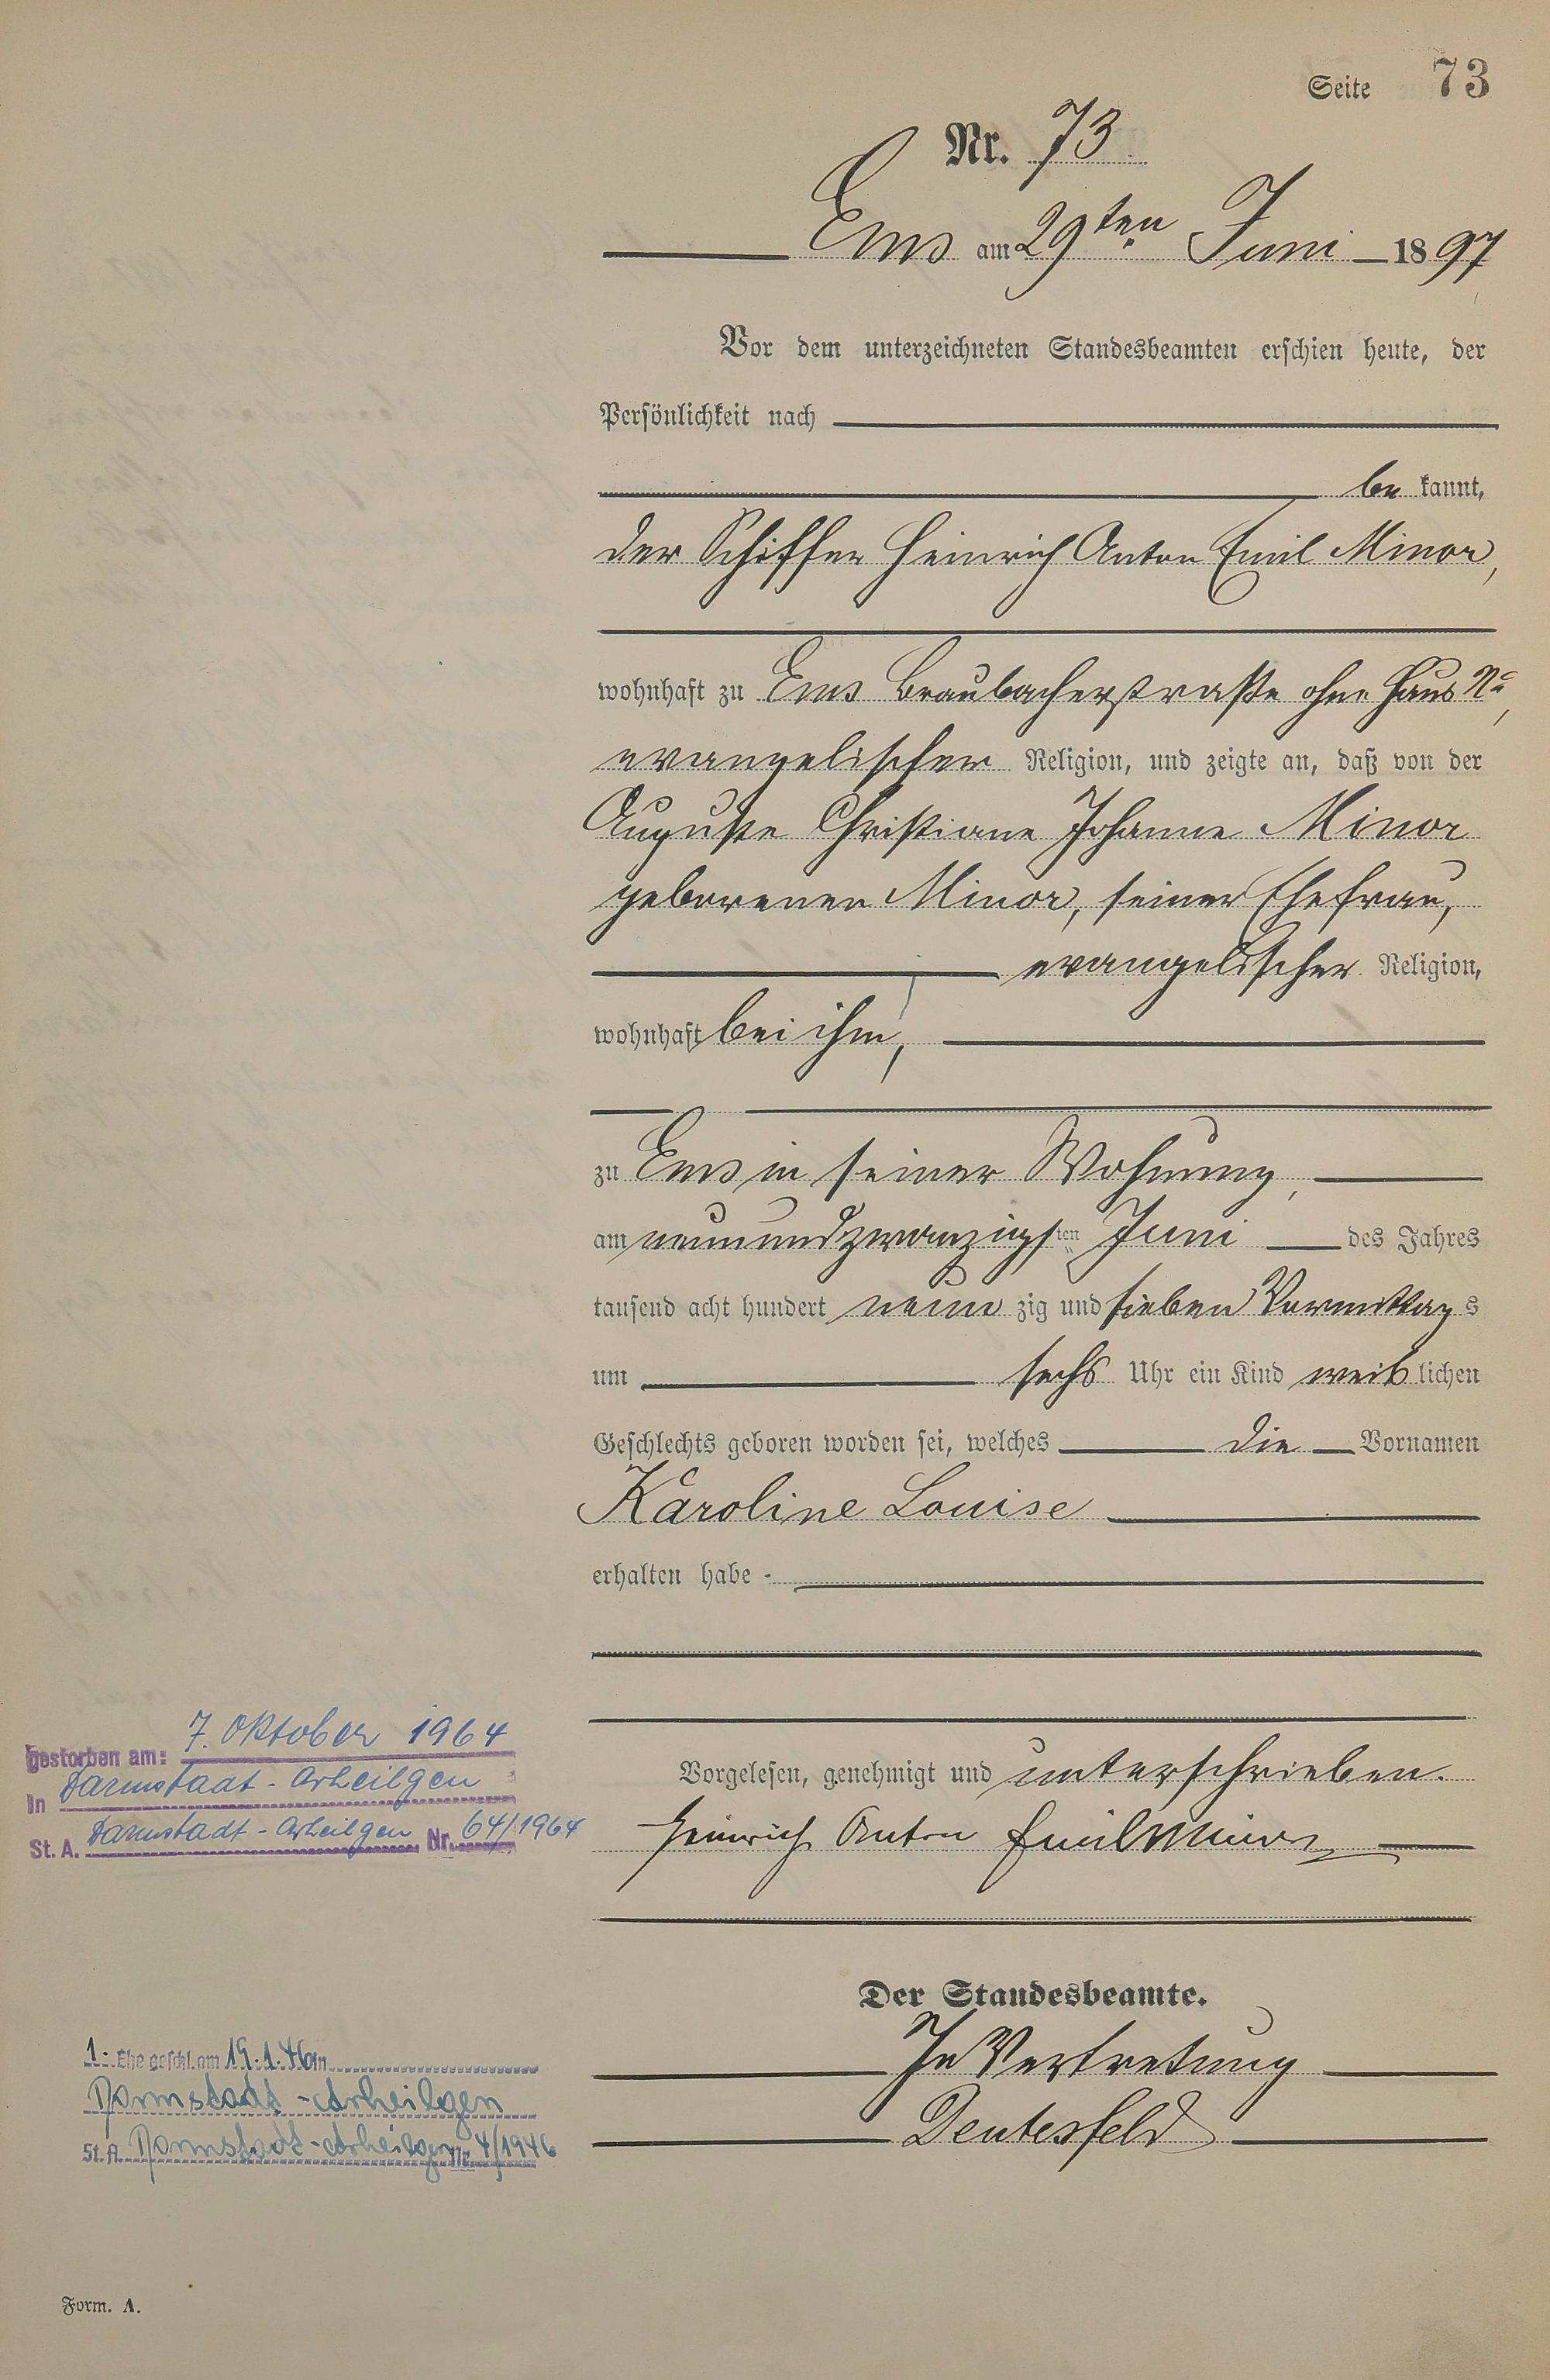 Seite 73
Nr. 73.
Ems am 29ten Juni 1897
Vor dem unterzeichneten Standesbeamten erschien heute, der
Persönlichkeit nach
be kannt,
der Schiffer Heinrich Anton Emil Minor,
wohnhaft zu Ems Braubacherstraße ohne Haus No,
evangelischer Religion, und zeigte an, daß von der
Auguste Christiane Johanne Minor
geborenen Minor, seiner Ehefrau,
evangelischer Religion,
wohnhaft bei ihm,
zu Ems in seiner Wohnung,
am neunundzwanzigsten Juni des Jahres
tausend acht hundert neun zig und sieben Vormittags
um sechs Uhr ein Kind weiblichen
Geschlechts geboren worden sei, welches die Vornamen
Karoline Louise
erhalten habe.
Vorgelesen, genehmigt und unterschrieben.
Heinrich Anton Emil Minor
Der Standesbeamte.
In Vertretung
Deutesfeld
gestorben am: 7. Oktober 1964
in Darmstadt-Arheilgen
St. A. Darmstadt-Arheilgen Nr. 64/1964
1. Ehe geschl. am 19.1.46 in
Darmstadt-Arheilgen
St. A. Darmstadt-Arheilgen Nr. 4/1946
Form. A.